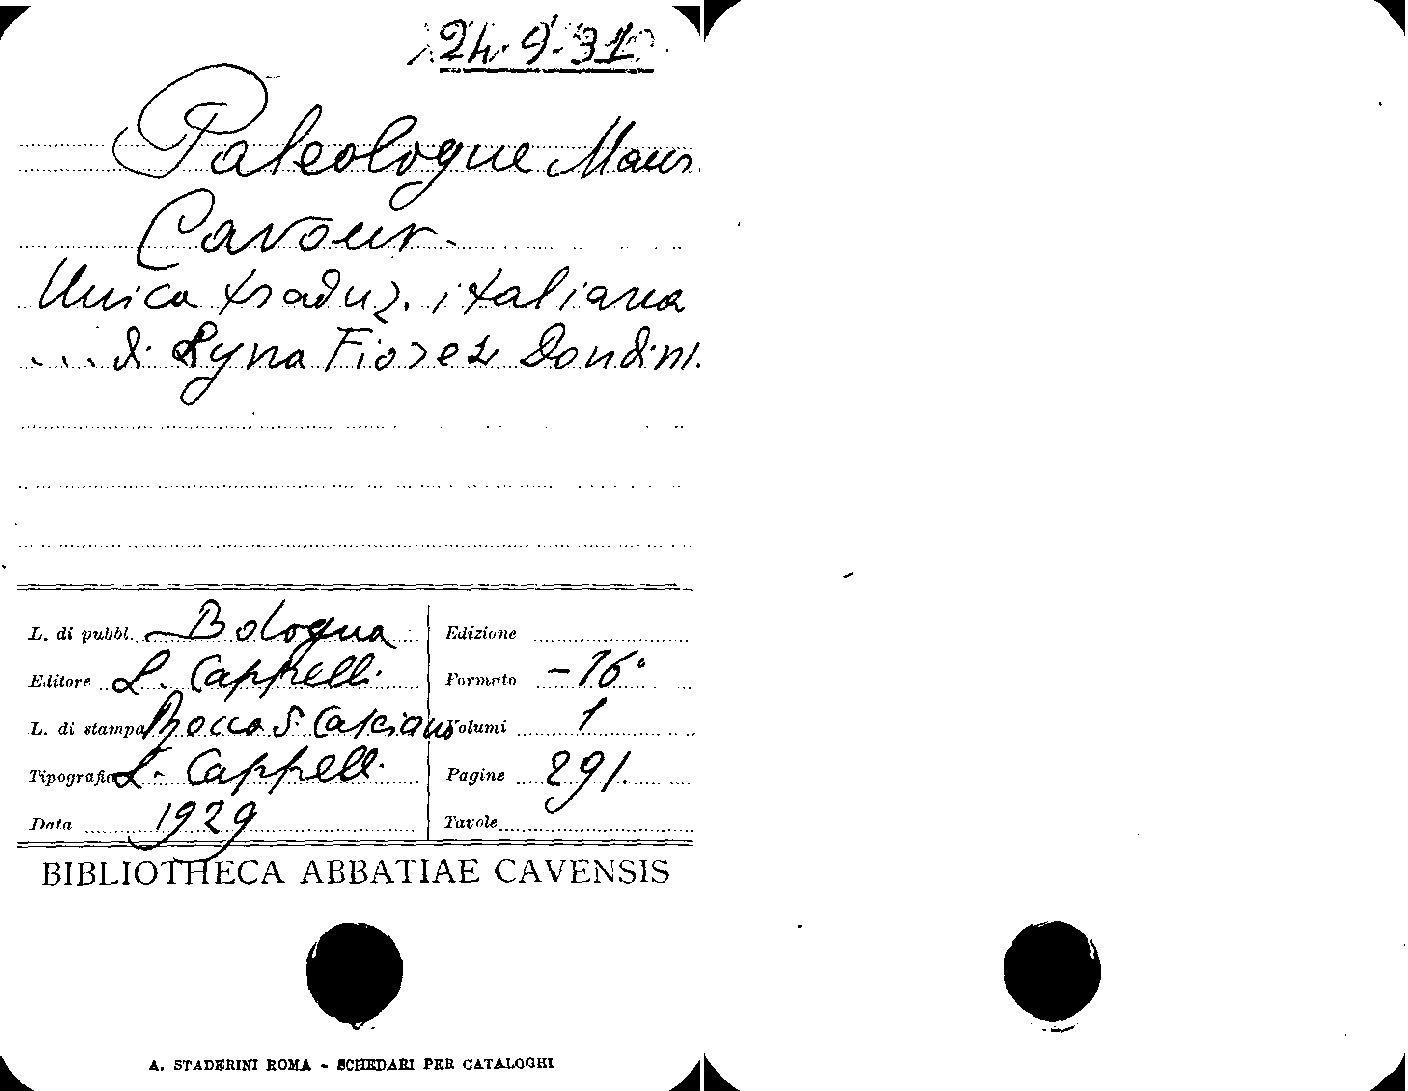 24.9.31
Paleologue Maur
Cavour.
Unica traduz. italiana
... di Lyna Fiorez Dondini.
L. di pubbl. Bologna
Editore L. Cappelli.
L. di stampa Rocca S. Casciano
Tipografia L. Cappelli.
Data 1929
Edizione
Formato -16°
Volumi 1
Pagine 291.
Tavole
BIBLIOTHECA ABBATIAE CAVENSIS
A. STADERINI ROMA - SCHEDARI PER CATALOGHI